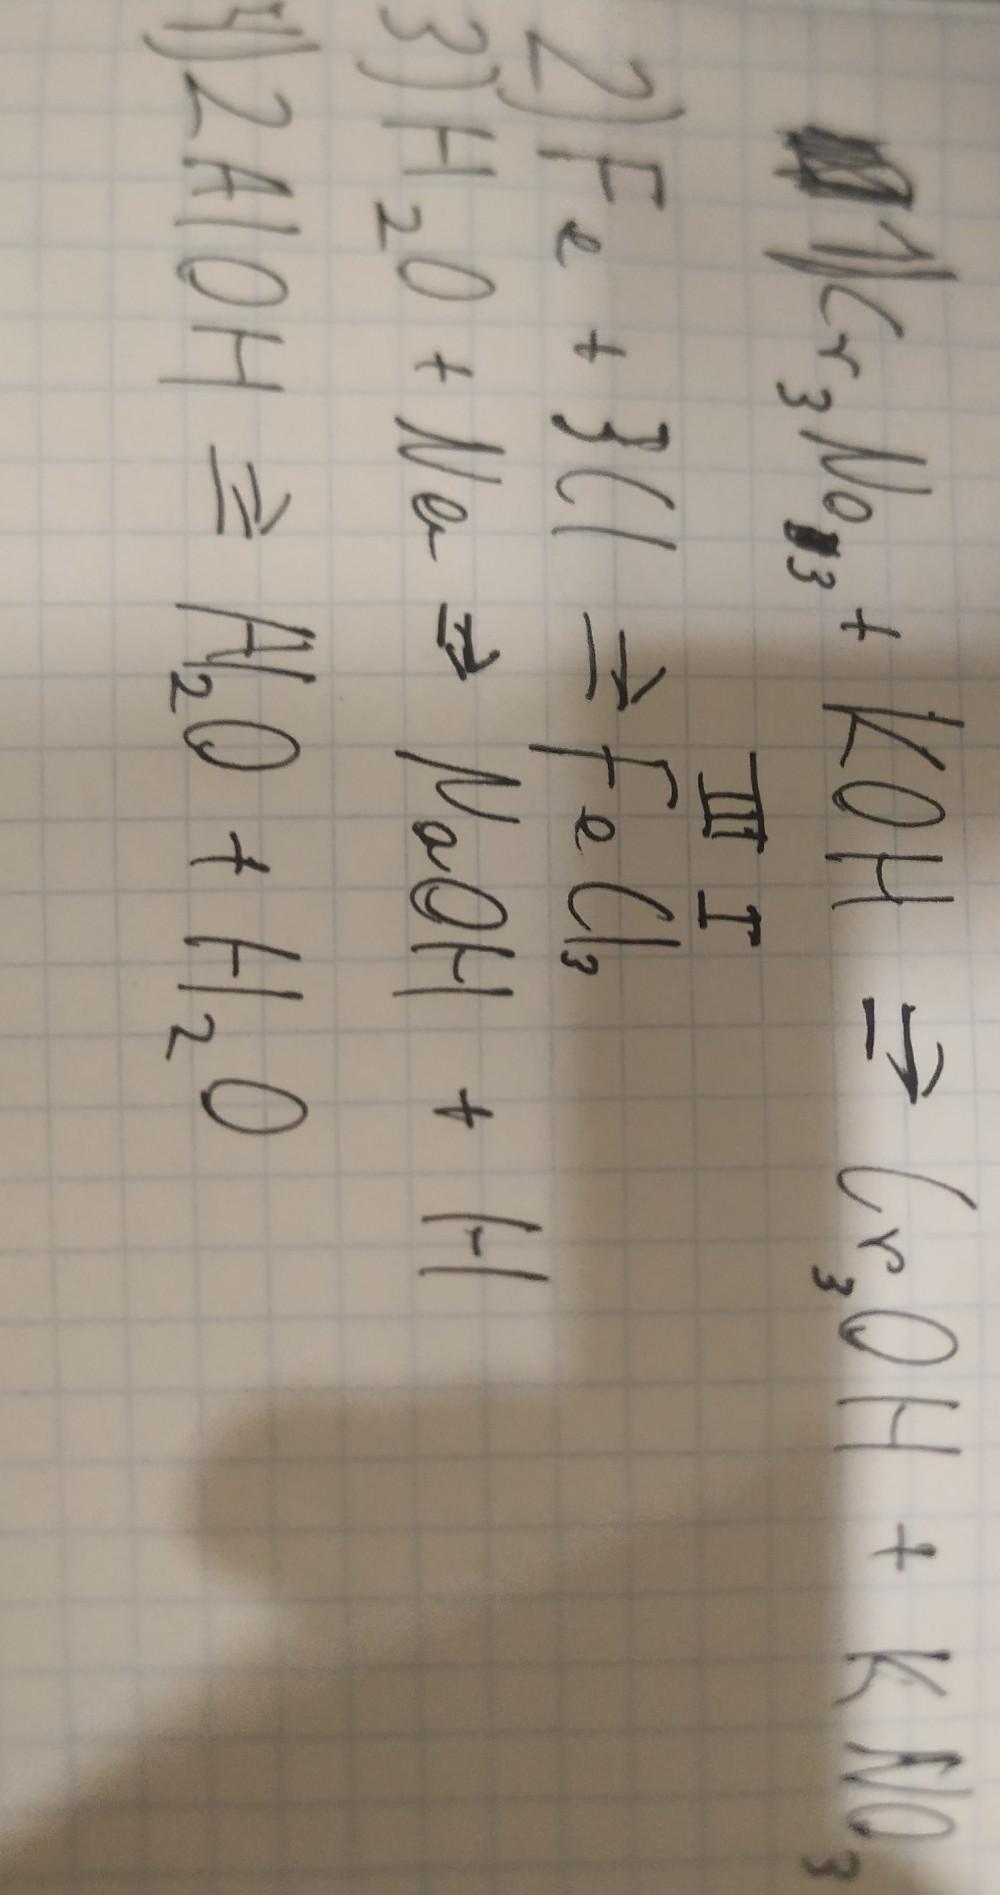 1) Cr₃NO₃ + KOH ⇒ Cr₃OH + KNO₃
III I
2) Fe + 3Cl ⇒ FeCl₃
3) H₂O + Na ⇒ NaOH + H
4) 2AlOH ⇒ Al₂O + H₂O